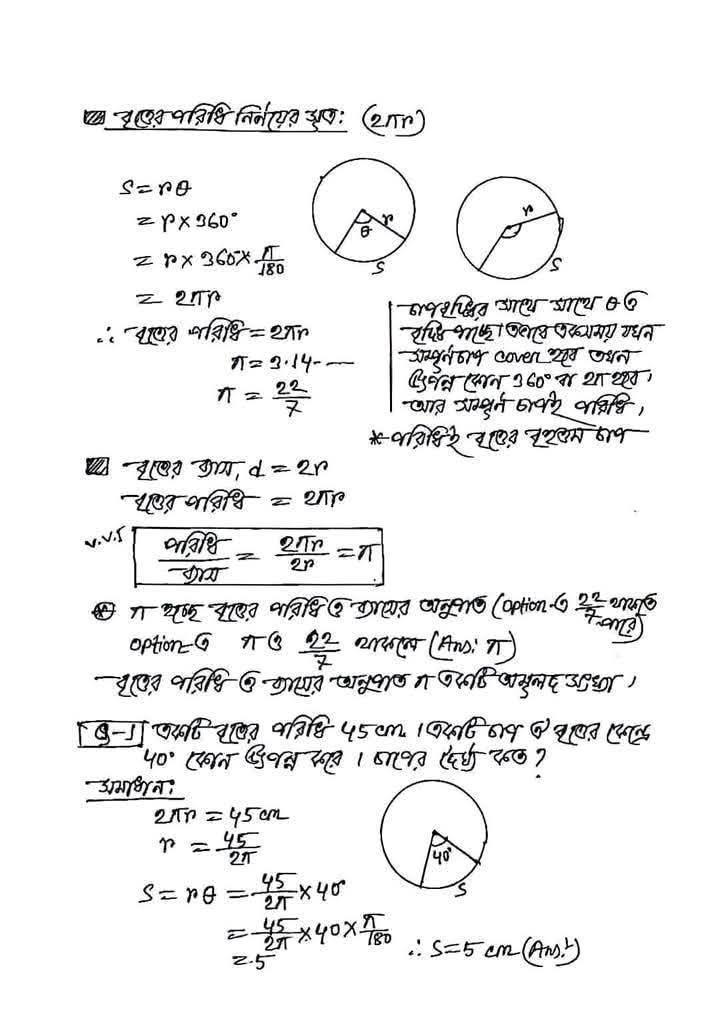 বৃত্তের পরিধি নির্ণয়ের সূত্র: (2πr)
S = rθ
= r × 360°
= r × 360° × π/180
= 2πr
∴ বৃত্তের পরিধি = 2πr
π = 3.14 - - -
π = 22/7
θ r S
r S
চাপ বৃদ্ধির সাথে সাথে θ ও
বৃদ্ধি পাচ্ছে। এভাবে একসময় যখন
সম্পূর্ণ চাপ cover হবে তখন
উৎপন্ন কোন 360° বা 2π হবে।
আর সম্পূর্ণ চাপই পরিধি।
* পরিধিই বৃত্তের বৃহত্তম চাপ
বৃত্তের ব্যাস, d = 2r
বৃত্তের পরিধি = 2πr
v.v.I পরিধি/ব্যাস = 2πr/2r = π
* π হচ্ছে বৃত্তের পরিধি ও ব্যাসের অনুপাত (option-এ 22/7 থাকতে পারে)
option-এ π ও 22/7 থাকলে (Ans: π)
বৃত্তের পরিধি ও ব্যাসের অনুপাত π একটি অমূলদ সংখ্যা।
Q-1 একটি বৃত্তের পরিধি 45cm । একটি চাপ ঐ বৃত্তের কেন্দ্রে
40° কোন উৎপন্ন করে । চাপের দৈর্ঘ্য কত?
সমাধান:
2πr = 45cm
r = 45/2π
S = rθ = 45/2π × 40°
= 45/2π × 40 × π/180
= 5
40° S
∴ S = 5 cm (Ans:)